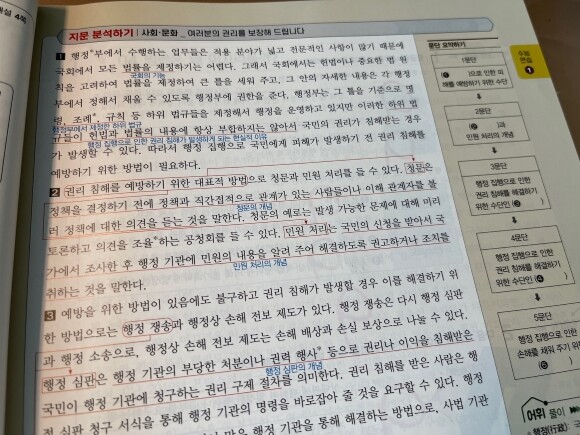 해설 4쪽
지문 분석하기 | 사회·문화 _ 여러분의 권리를 보장해 드립니다
1 행정*부에서 수행하는 업무들은 적용 분야가 넓고 전문적인 사항이 많기 때문에
국회에서 모든 법률을 제정하기는 어렵다. 그래서 국회에서는 헌법이나 중요한 법 원
국회의 기능
칙을 고려하여 법률을 제정하여 큰 틀을 세워 주고, 그 안의 자세한 내용은 각 행정
부에서 정해서 채울 수 있도록 행정부에 권한을 준다. 행정부는 그 틀을 기준으로 명
령, 조례*, 규칙 등 하위 법규들을 제정해서 행정을 운영하고 있지만 이러한 하위 법
행정부에서 제정한 하위 법규
규들이 헌법과 법률의 내용에 항상 부합하지는 않아서 국민의 권리가 침해받는 경우
행정 집행으로 인한 권리 침해가 발생하게 되는 현실적 이유
가 발생할 수 있다. 따라서 행정 집행으로 국민에게 피해가 발생하기 전 권리 침해를
예방하기 위한 방법이 필요하다.
2 권리 침해를 예방하기 위한 대표적 방법으로 청문과 민원 처리를 들 수 있다. 청문은
정책을 결정하기 전에 정책과 직간접적으로 관계가 있는 사람들이나 이해 관계사를 불
러 정책에 대한 의견을 듣는 것을 말한다. 청문의 예로는 발생 가능한 문제에 대해 미리
청문의 개념
토론하고 의견을 조율*하는 공청회를 들 수 있다. 민원 처리는 국민의 신청을 받아서 국
가에서 조사한 후 행정 기관에 민원의 내용을 알려 주어 해결하도록 권고하거나 조치를
민원 처리의 개념
취하는 것을 말한다.
3 예방을 위한 방법이 있음에도 불구하고 권리 침해가 발생할 경우 이를 해결하기 위
한 방법으로는 행정 쟁송과 행정상 손해 전보 제도가 있다. 행정 쟁송은 다시 행정 심판
과 행정 소송으로, 행정상 손해 전보 제도는 손해 배상과 손실 보상으로 나눌 수 있다.
행정 심판은 행정 기관의 부당한 처분이나 권력 행사* 등으로 권리나 이익을 침해받은
행정 심판의 개념
국민이 행정 기관에 청구하는 권리 구제 절차를 의미한다. 권리 침해를 받은 사람은 행
정 심판 청구 서식을 통해 행정 기관의 명령을 바로잡아 줄 것을 요구할 수 있다. 행정
행정 기관을 통해 해결하는 방법으로, 사법 기관
문단 요약하기
1문단
( ❶ )으로 인한 피
해를 예방하기 위한 수단
2문단
( ❷ )과
민원 처리의 개념
3문단
행정 집행으로 인한
권리 침해를 해결하기
위한 수단인 (❸ )
4문단
행정 집행으로 인한
권리 침해를 해결하기
위한 수단인 (❹ )
5문단
행정 집행으로 인한
손해를 채워 주기 위
한
어휘 풀이
• 행정(行政):
수능
연습
1